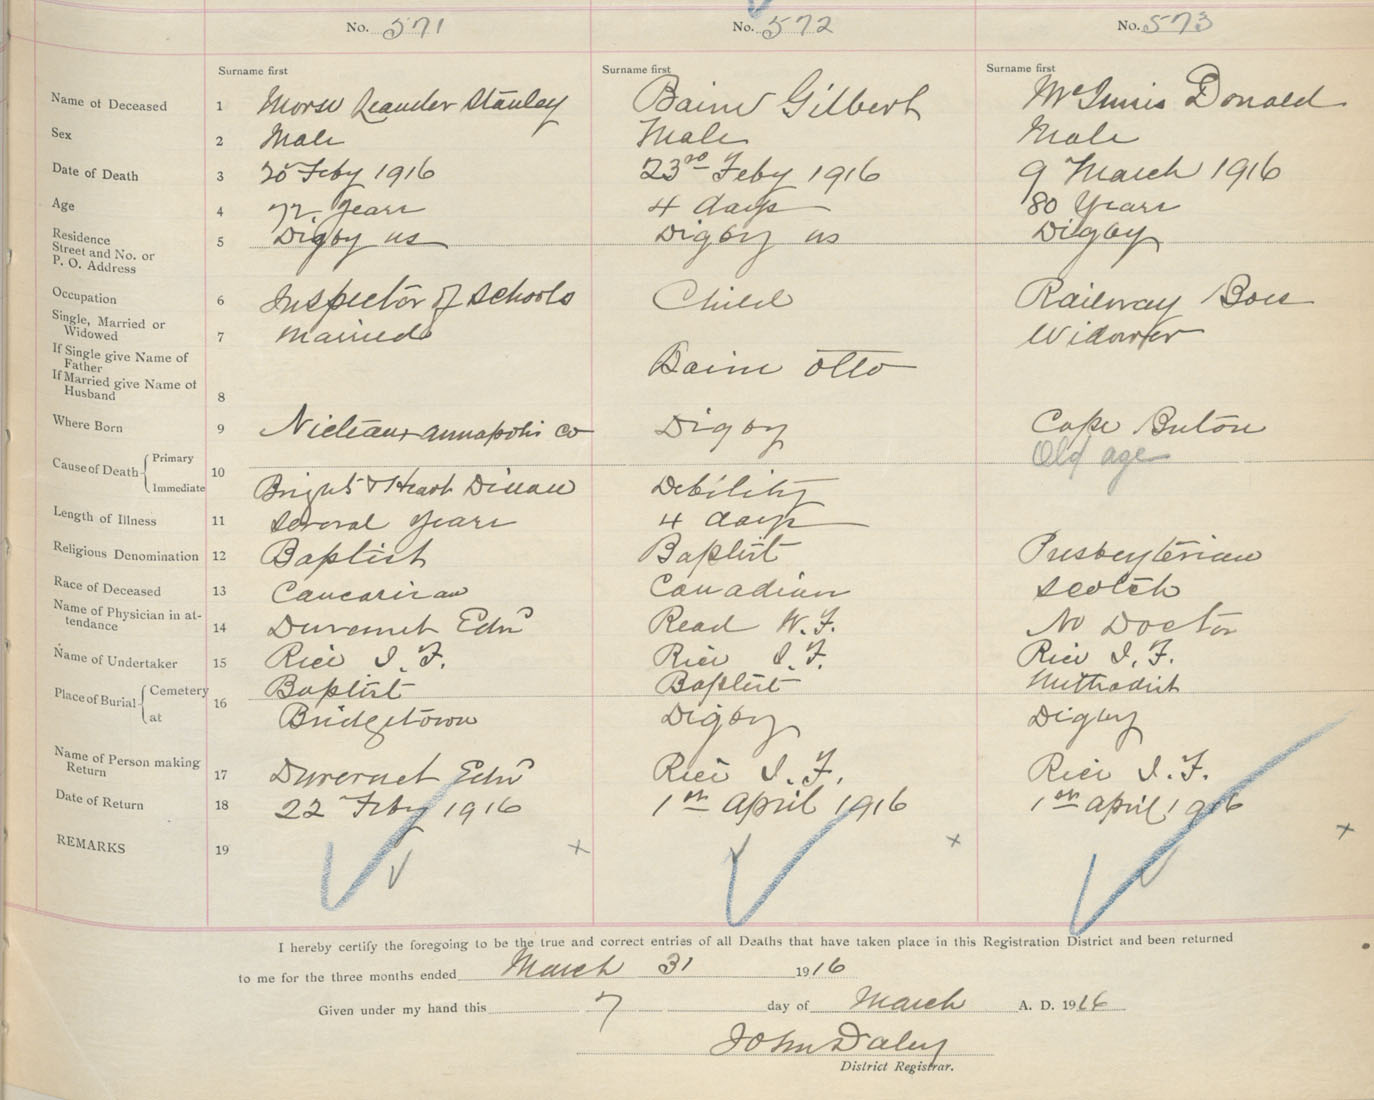 No. 571 No. 572 No. 573
Surname first Surname first Surname first
Name of Deceased 1 Morse Leander Stanley Baine Gilbert McInnis Donald
Sex 2 Male Male Male
Date of Death 3 20 Feby 1916 23rd Feby 1916 9 March 1916
Age 4 72 years 4 days 80 Years
Residence
Street and No. or
P. O. Address 5 Digby ns Digby ns Digby
Occupation 6 Inspector of Schools Child Railway Boss
Single, Married or
Widowed 7 Married Widower
If Single give Name of
Father Baine Otto
If Married give Name of
Husband 8
Where Born 9 Nictaux Annapolis Co Digby Cape Breton
Cause of Death Primary 10 Old age
Immediate Brights & Heart Disease Debility
Length of Illness 11 Several years 4 days
Religious Denomination 12 Baptist Baptist Presbyterian
Race of Deceased 13 Caucasian Canadian Scotch
Name of Physician in at-
tendance 14 Duvernet Edwd Read W. F. No Doctor
Name of Undertaker 15 Rice I. F. Rice I. F. Rice I. F.
Place of Burial Cemetery 16 Baptist Baptist Methodist
at Bridgetown Digby Digby
Name of Person making
Return 17 Duvernet Edwd Rice I. F. Rice I. F.
Date of Return 18 22 Feby 1916 1st April 1916 1st April 1916
REMARKS 19
I hereby certify the foregoing to be the true and correct entries of all Deaths that have taken place in this Registration District and been returned
to me for the three months ended March 31 1916
Given under my hand this 7 day of March A. D. 1916
John Daley
District Registrar.